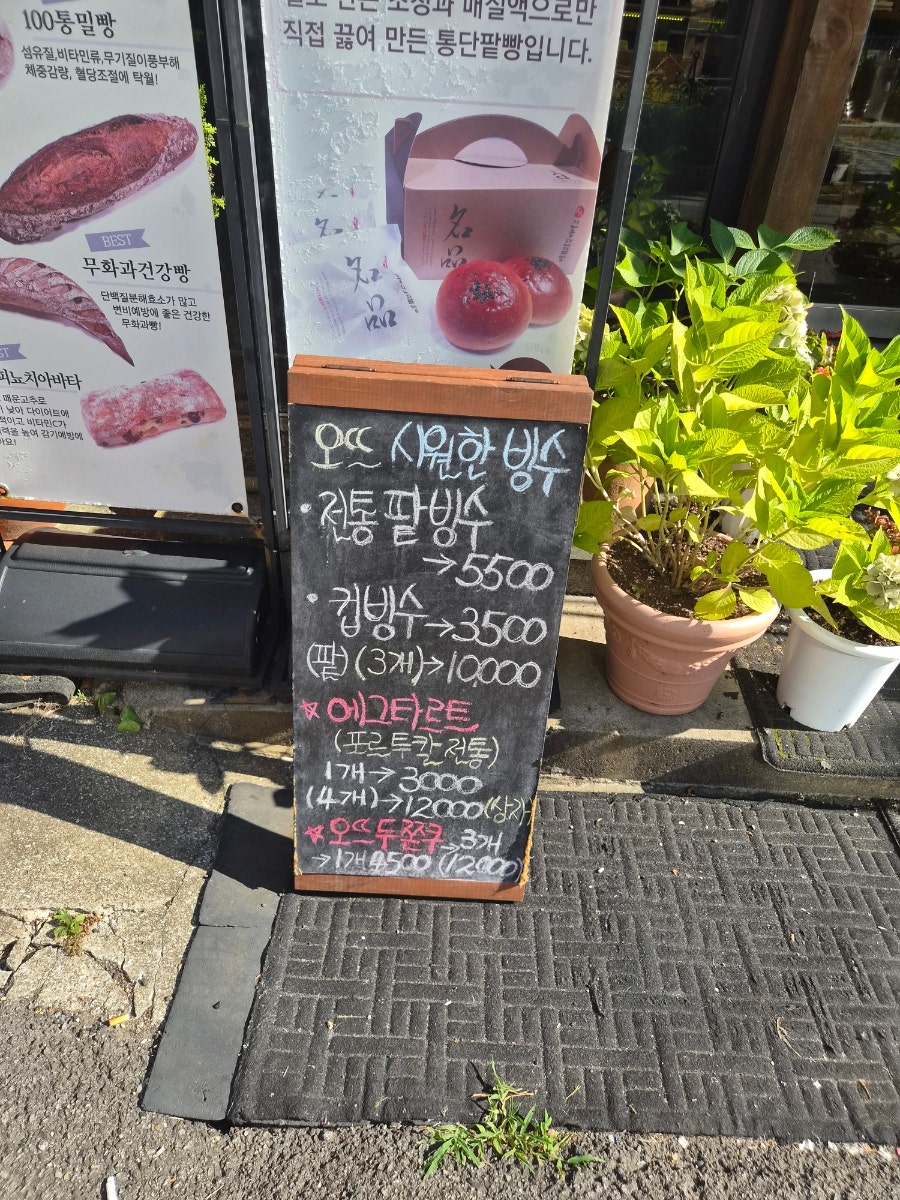 100통밀빵
섬유질,비타민류,무기질이풍부해
체중감량, 혈당조절에 탁월!
BEST
무화과건강빵
단백질분해효소가 많고
변비예방에 좋은 건강한
무화과빵!
피뇨치아바타
매운고추로
낮아 다이어트에
적이고 비타민C가
력을 높여 감기예방에
직접 끓여 만든 통단팥빵입니다.
名品
名品
오뜨 시원한 빙수
·전통 팥빙수
→5500
·컵빙수→3500
(팥)(3개)→10,000
☆에그타르트
(포르투칼 전통)
1개→3000
(4개)→12000(상자
☆오뜨두쫀쿠→3개
→1개4500 (12000)